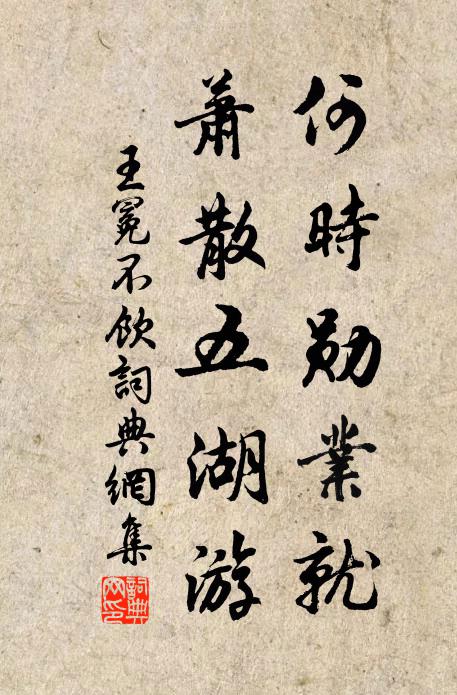 何時勛業就
蕭散五湖游
王冕不飲詞典網集
詞典網印